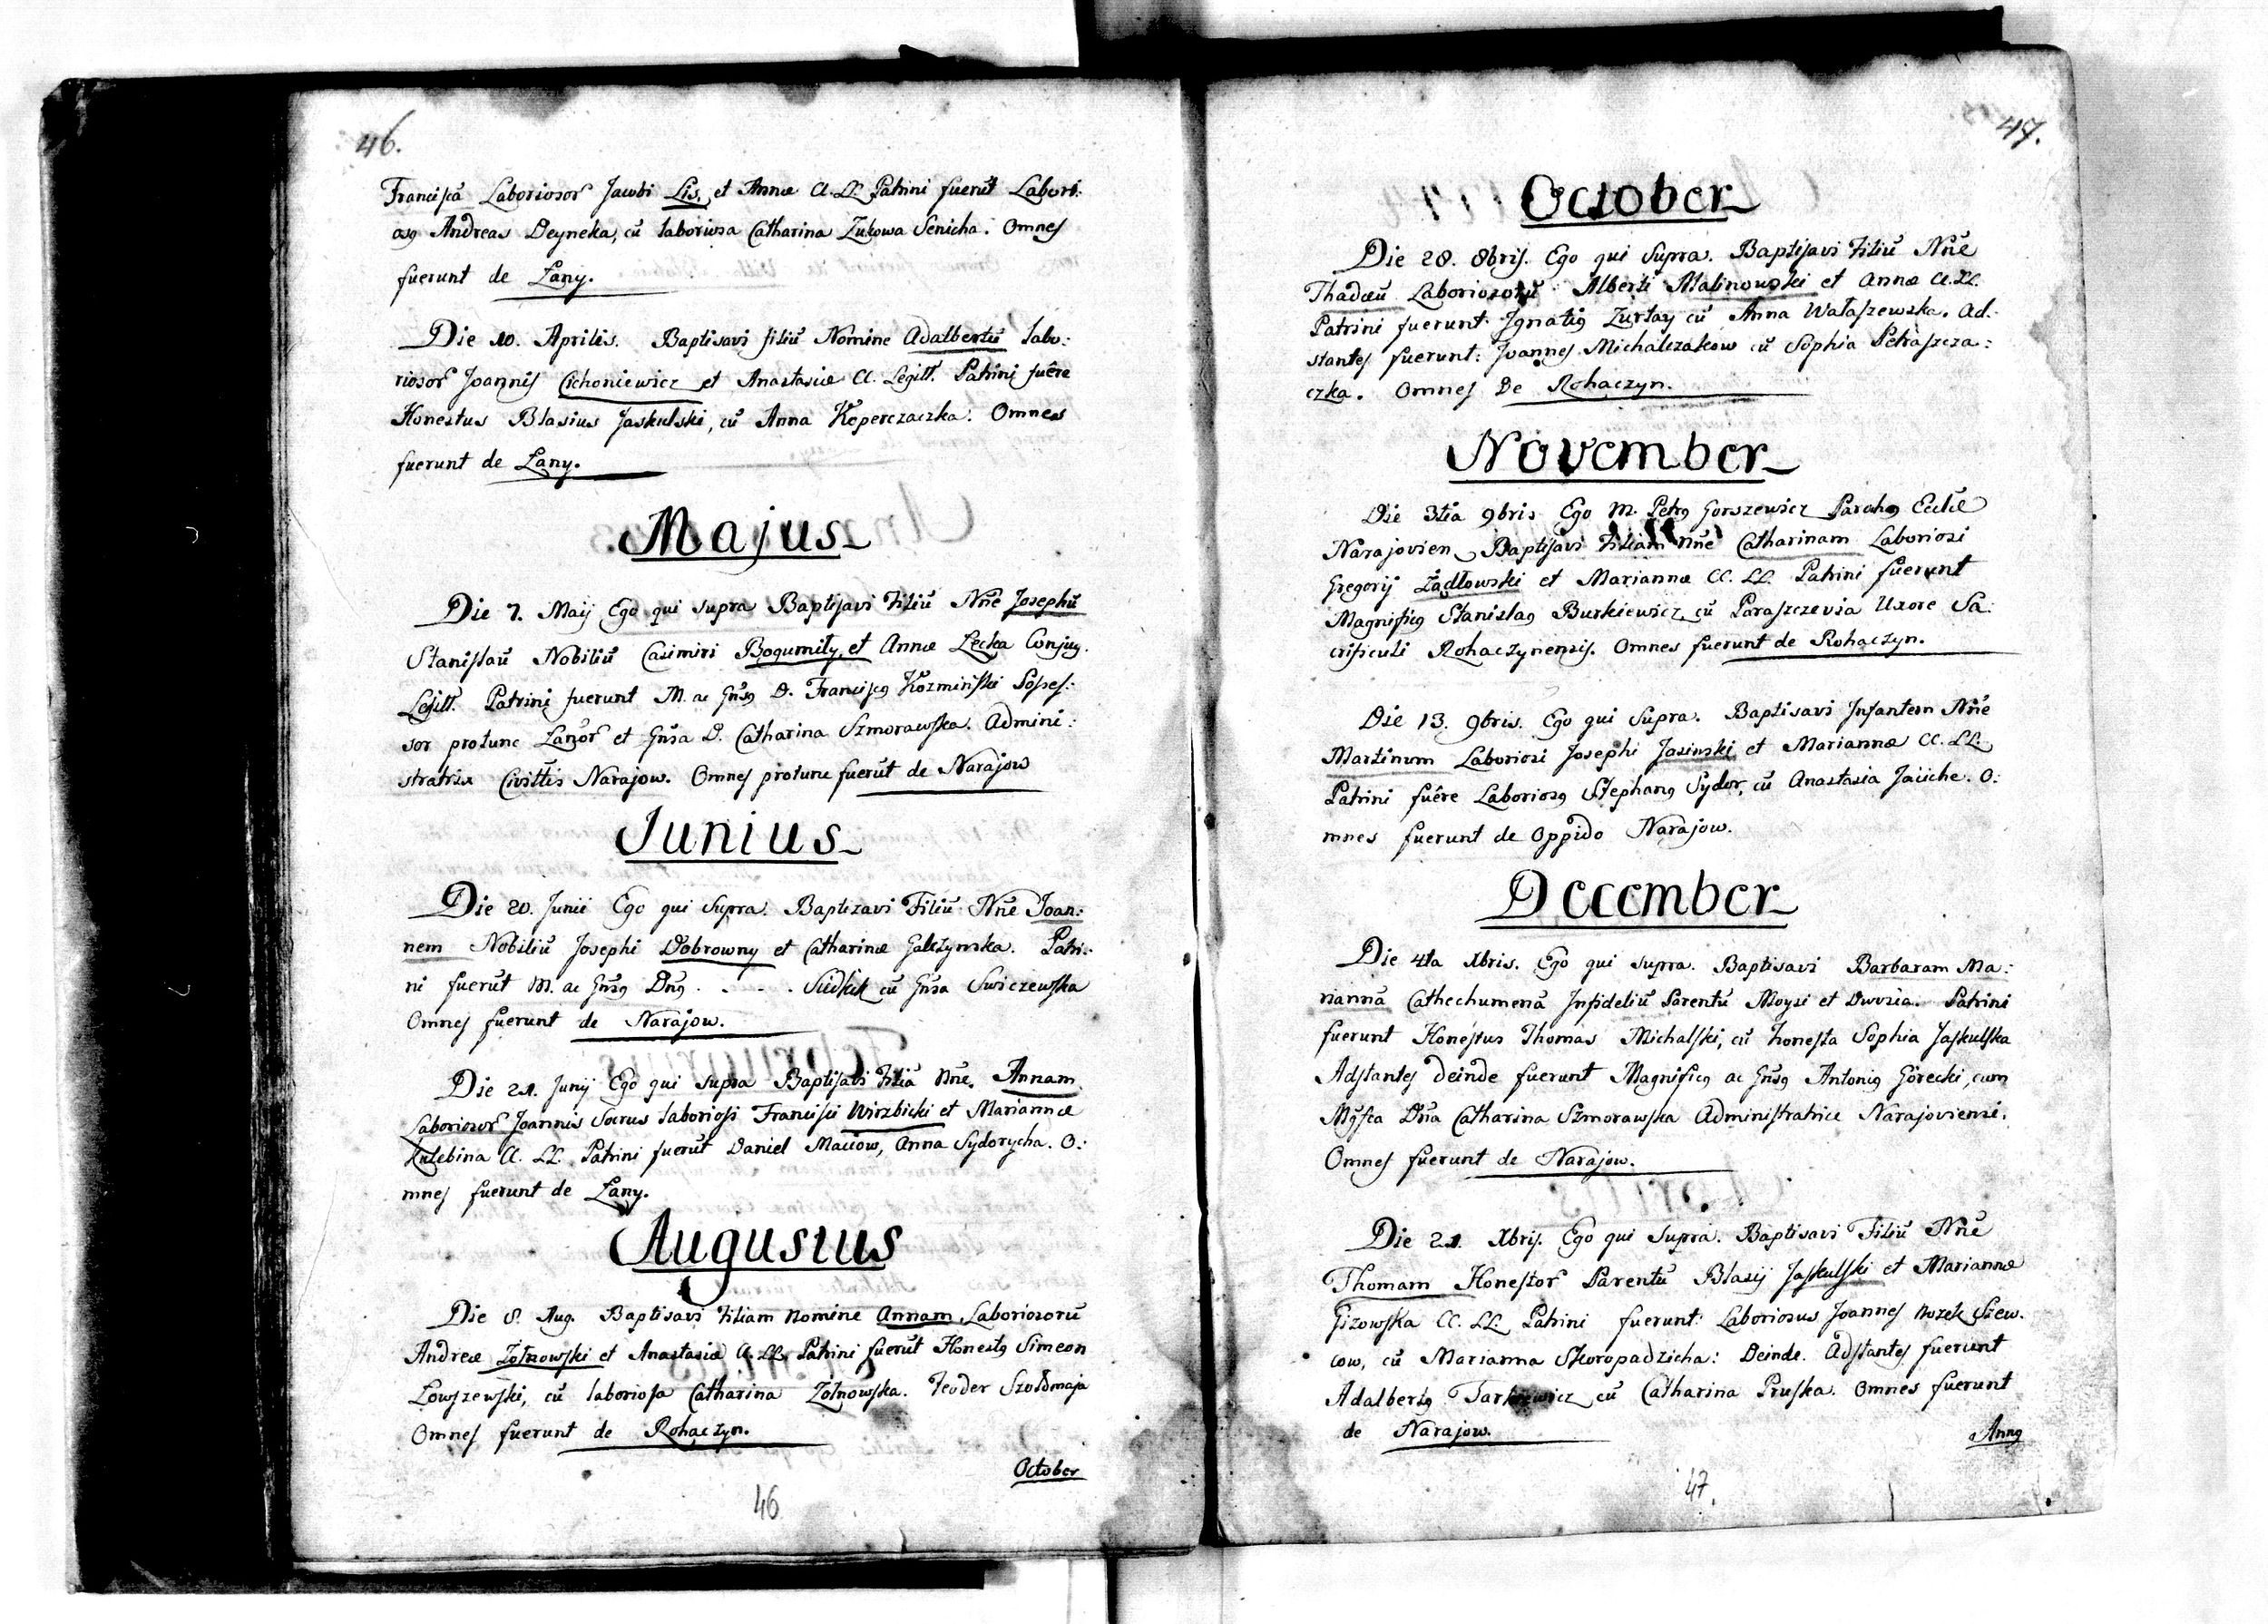 46.
Francisca Laboriosor Jacobi Lis, et Annæ CC. LL. Patrini fuerūt Labori:
osq Andreas Deyneka, cū laboriosa Catharina Zukowa Senicha. Omnes
fuerunt de Łany.
Die 10. Aprilis. Baptisavi filiū Nomine Adalbertū labo:
riosor Joannis Cichoniewicz et Anastasiæ CC. Legitt. Patrini fuêre
Honestus Blasius Jaskulski, cū Anna Keperczaczka. Omnes
fuerunt de Łany.
Majus
Die 7. Maij Ego qui supra Baptisavi Filiū Nñe Josephū
Stanislaū Nobiliū Casimiri Bogumiły, et Annæ Łecka Conjug.
Legitt. Patrini fuerunt M. ac Gñsq D. Franciscq Kozminski Posses:
sor protunc Łanor et Gñsa D. Catharina Szmorawska. Admini:
stratrix Civittis Narajow. Omnes protunc fuerūt de Narajow
Junius
Die 20. Junii Ego qui supra. Baptizavi Filiū Nñe Joan:
nem Nobiliū Josephi Dobrowny et Catharinæ Galczynska. Patri:
ni fuerūt M. ac Gñsq Dñq . - - - . cū Gñsa Swiczewska
Omnes fuerunt de Narajow.
Die 21. Junij Ego qui supra Baptisavi Filiā Nñe. Annam
Laboriosor Joannis Socrus laboriosi Francisci Wirzbicki et Mariannæ
CC. LL. Patrini fuerūt Daniel Maciow, Anna Sydorycha. O:
mnes fuerunt de Łany.
Augustus
Die 8. Aug. Baptisavi Filiam Nomine Annam, Laboriosorū
Andreæ Zołnowski et Anastasiæ CC. LL. Patrini fuerūt Honestq Simeon
Łowszewski, cū laboriosa Catharina Zołnowska. Feoder Szołdmaja
Omnes fuerunt de Rohaczyn.
October
46
47.
October
Die 28. 8bris. Ego qui supra. Baptisavi Filiū Nñe
Thadæū Laboriosorū Alberti Malinowski et Annæ CC. LL.
Patrini fuerunt Ignatiq Zurtay cū Anna Wataszewska. Ad:
stantes fuerunt: Joannes Michalczakow cū Sophia Petraszcza:
czka. Omnes De Rohaczyn.
November
Die 3tia 9bris Ego M. Petrq Gorszewicz Parohq Ecclæ
Narajovien Baptisavi Filiam Nñe Catharinam Laboriosi
Gregorij Żądłowski et Mariannæ CC. LL. Patrini fuerunt
Magnificq Stanislaq Burkiewicz cū Paraszczevia Uxore Sa:
crificuli Rohaczynensis. Omnes fuerunt de Rohaczyn.
Die 13. 9bris. Ego qui supra. Baptisavi Infantem Nñe
Martinum Laboriosi Josephi Jasinski et Mariannæ CC. LL.
Patrini fuêre Laboriosq Stephanq Sydor, cū Anastasia Jaiiche. O:
mnes fuerunt de Oppido Narajow.
December
Die 4ta Xbris. Ego qui supra. Baptisavi Barbaram Ma:
riannā Cathechumenā Infideliū Parentū Moysi et Dwosia. Patrini
fuerunt Honestus Thomas Michalski, cū honesta Sophia Jaskulska
Adstantes deinde fuerunt Magnificq ac Gñsq Antoniq Gorecki, cum
Mgfca Dña Catharina Szmorawska Administratrice Narajoviensi.
Omnes fuerunt de Narajow.
Die 21. Xbris. Ego qui supra. Baptisavi Filiū Nñe
Thomam Honestor Parentū Blasij Jaskulski et Mariannæ
Gizowska CC. LL. Patrini fuerunt: Laboriosus Joannes Nozek Szew.
cow, cū Marianna Skoropadzicha: Deinde. Adstantes fuerunt
Adalbertq cū Catharina Pruska. Omnes fuerunt
de Narajow.
Annq
47.